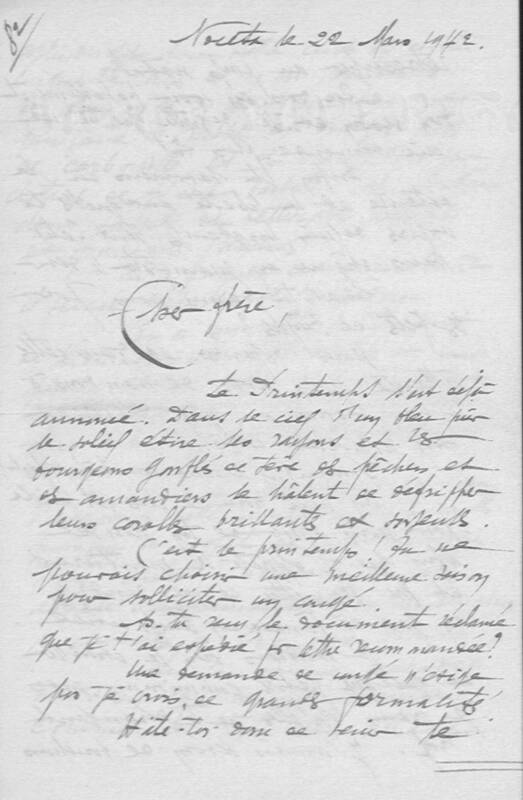 8°/
le 22 Mars 1942.
Cher frère,
Le Printemps s'est déjà
annoncé. Dans le ciel d'un bleu pur
le soleil étire ses rayons et les
bourgeons gonflés de sève des pêchers et
des amandiers se hâtent de défriper
leurs corolles brillants et soyeuses.
C'est le printemps! Tu ne
pouvais choisir une meilleure saison
pour solliciter un congé.
As-tu reçu le document réclamé
que je t'ai expédié pr lettre recommandée?
Une demande de congé n'exige
pas je crois, de grandes formalité.
Hâte-toi donc de venir te